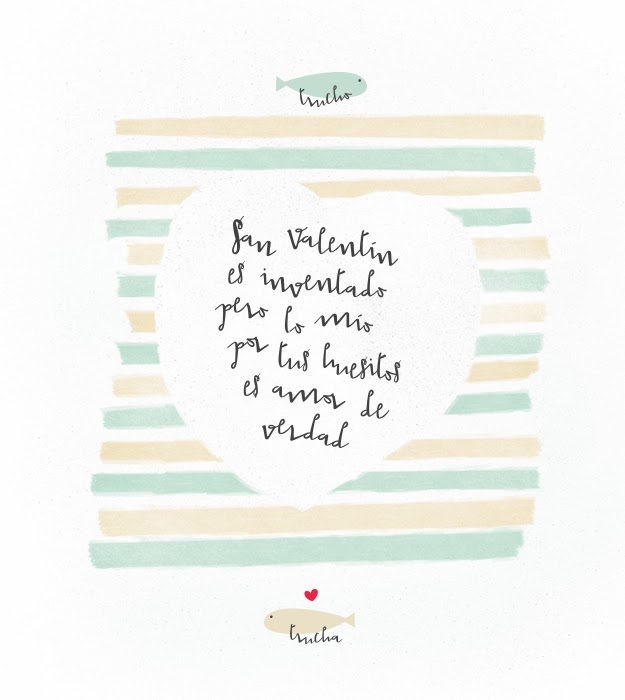 trucho
San Valentín
es inventado
pero lo mío
por tus huesitos
es amor de
verdad
trucha